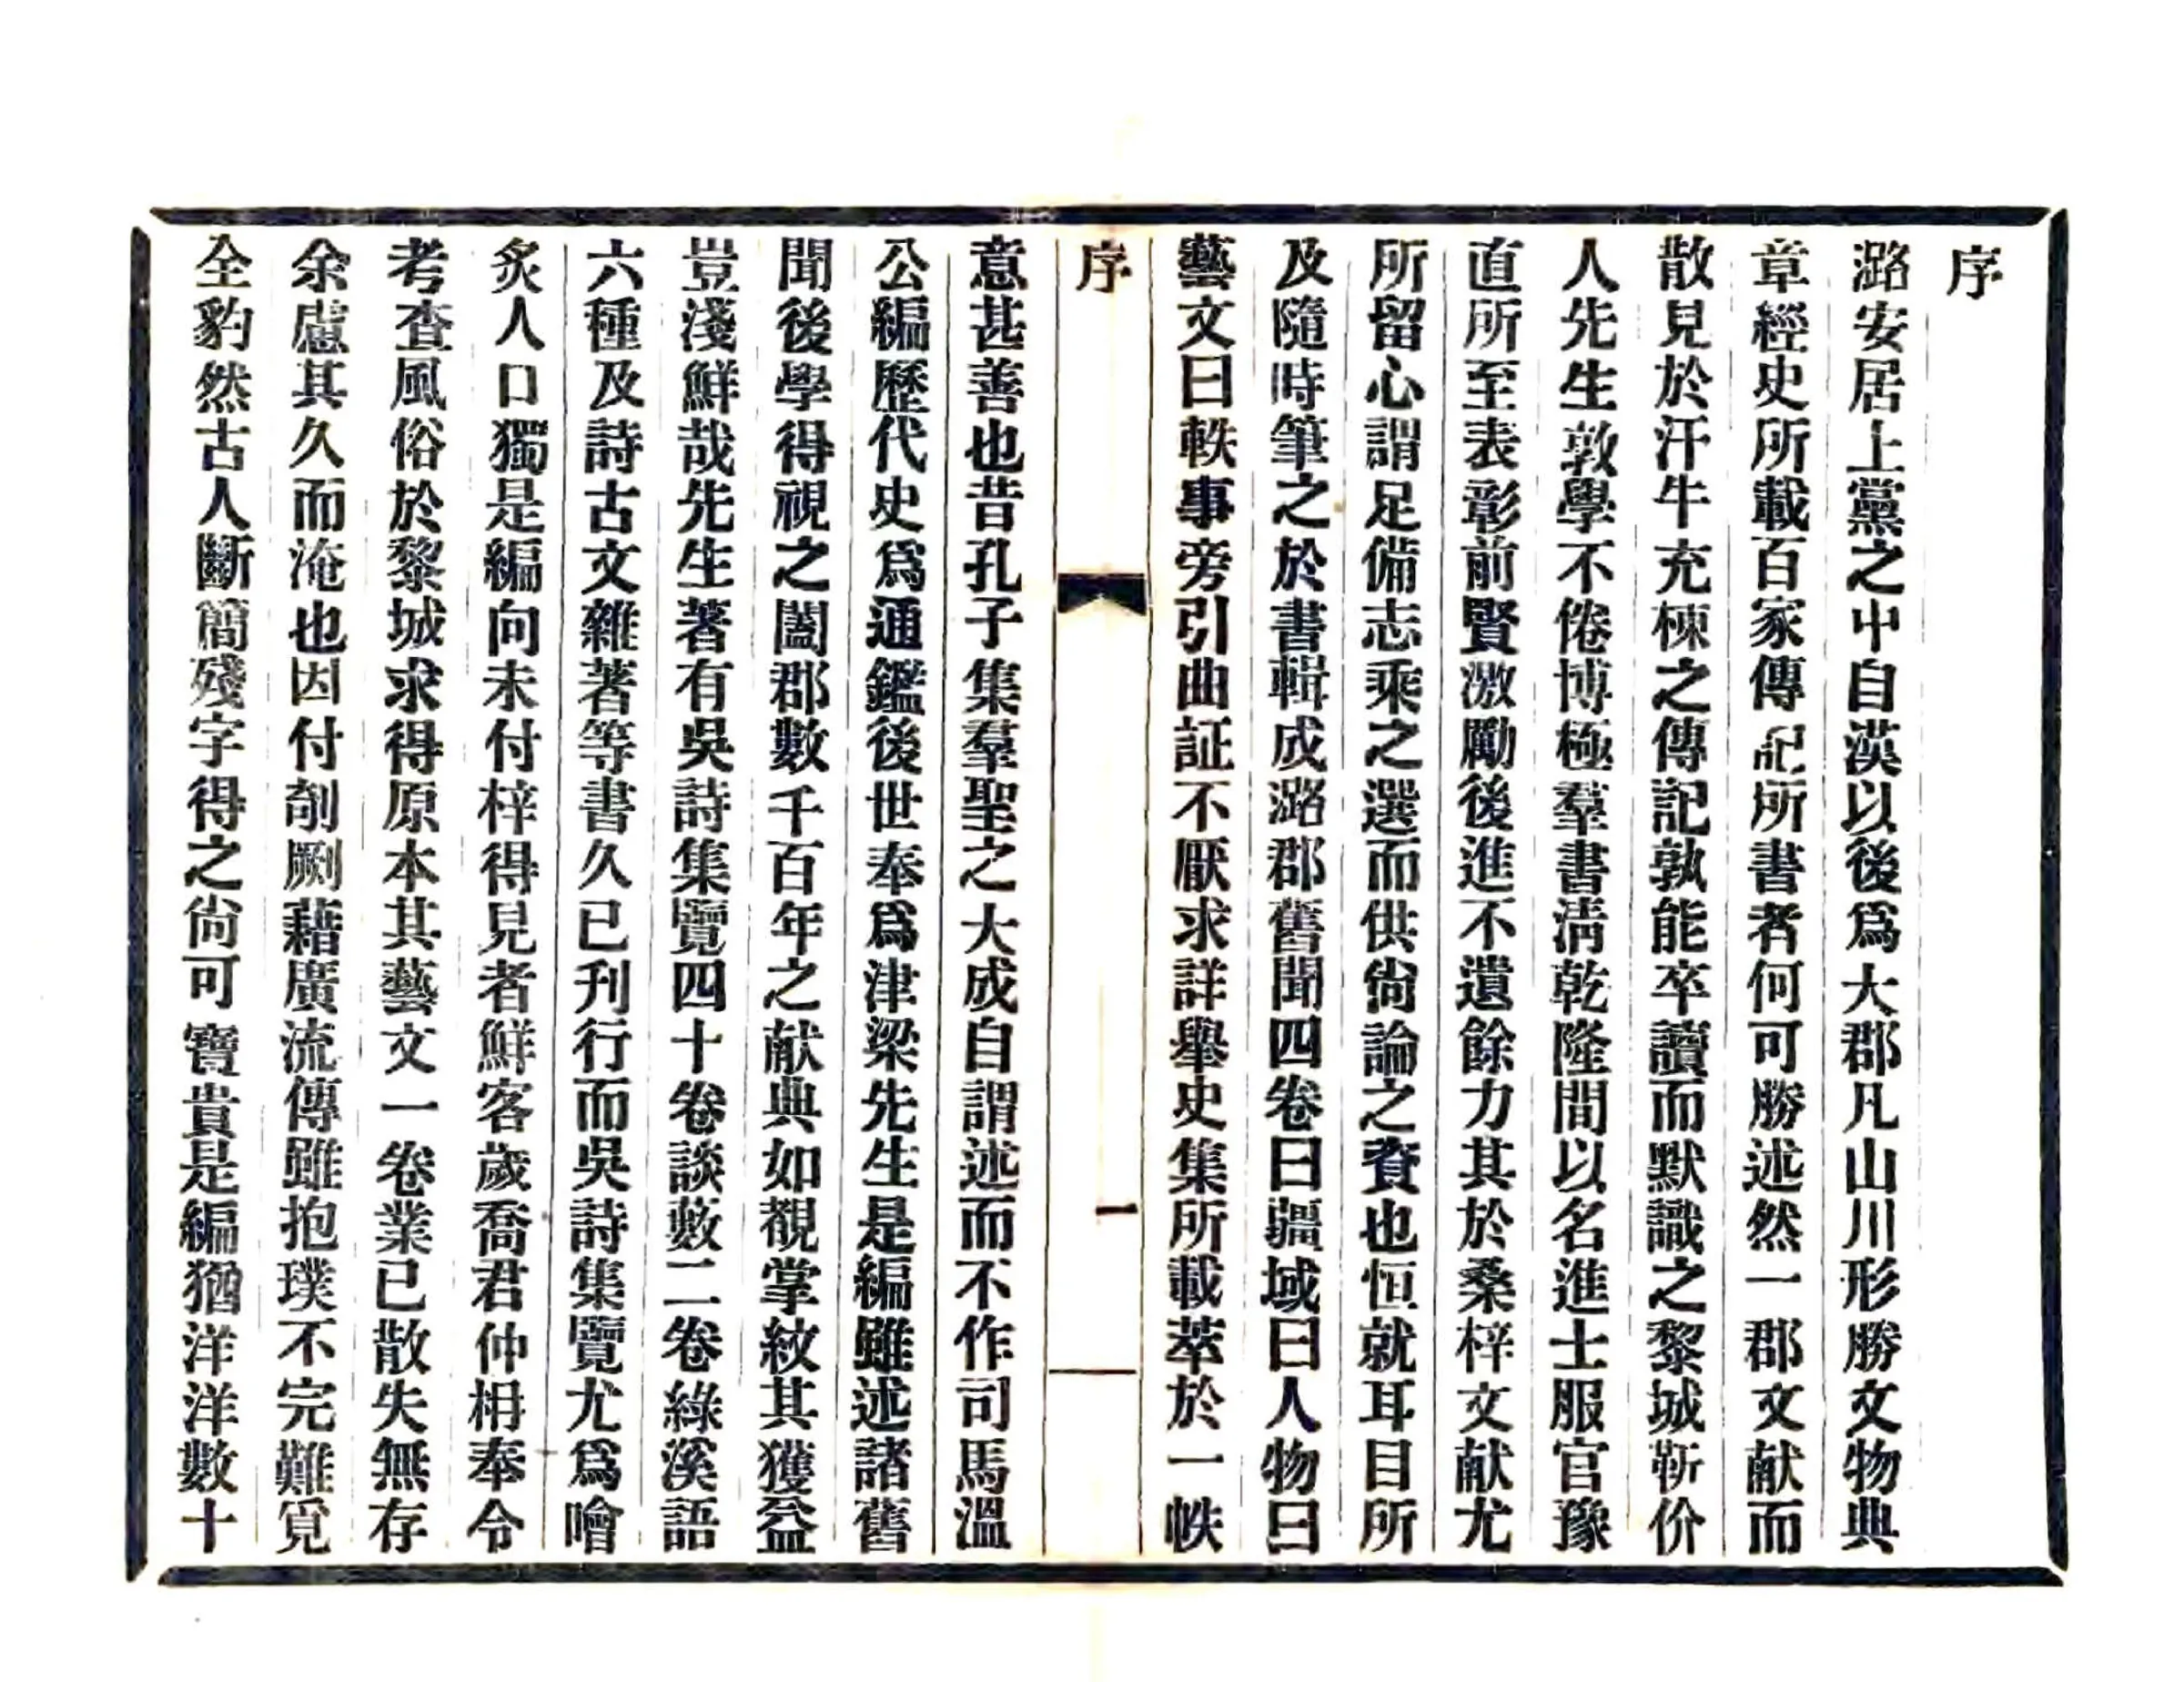 序
潞安居上黨之中自漢以後爲大郡凡山川形勝文物典
章經史所載百家傳記所書者何可勝述然一郡文献而
散見於汗牛充棟之傳記孰能卒讀而默識之黎城靳价
人先生敦學不倦博極羣書淸乾隆間以名進士服官豫
直所至表彰前賢激勵後進不遺餘力其於桑梓文献尤
所留心謂足備志乘之選而供尙論之資也恒就耳目所
及隨時筆之於書輯成潞郡舊聞四卷曰疆域曰人物曰
藝文曰軼事旁引曲証不厭求詳舉史集所載萃於一帙
序
一
意甚善也昔孔子集羣聖之大成自謂述而不作司馬溫
公編歷代史爲通鑑後世奉爲津梁先生是編雖述諸舊
聞後學得視之闔郡數千百年之献典如覩掌紋其獲益
豈淺鮮哉先生著有吳詩集覽四十卷談藪二卷綠溪語
六種及詩古文雜著等書久已刋行而吳詩集覽尤爲噲
炙人口獨是編向未付梓得見者鮮客歲喬君仲枏奉令
考查風俗於黎城求得原本其藝文一卷業已散失無存
余慮其久而淹也因付剞劂藉廣流傳雖抱璞不完難覓
全豹然古人斷簡殘字得之尙可寶貴是編猶洋洋數十